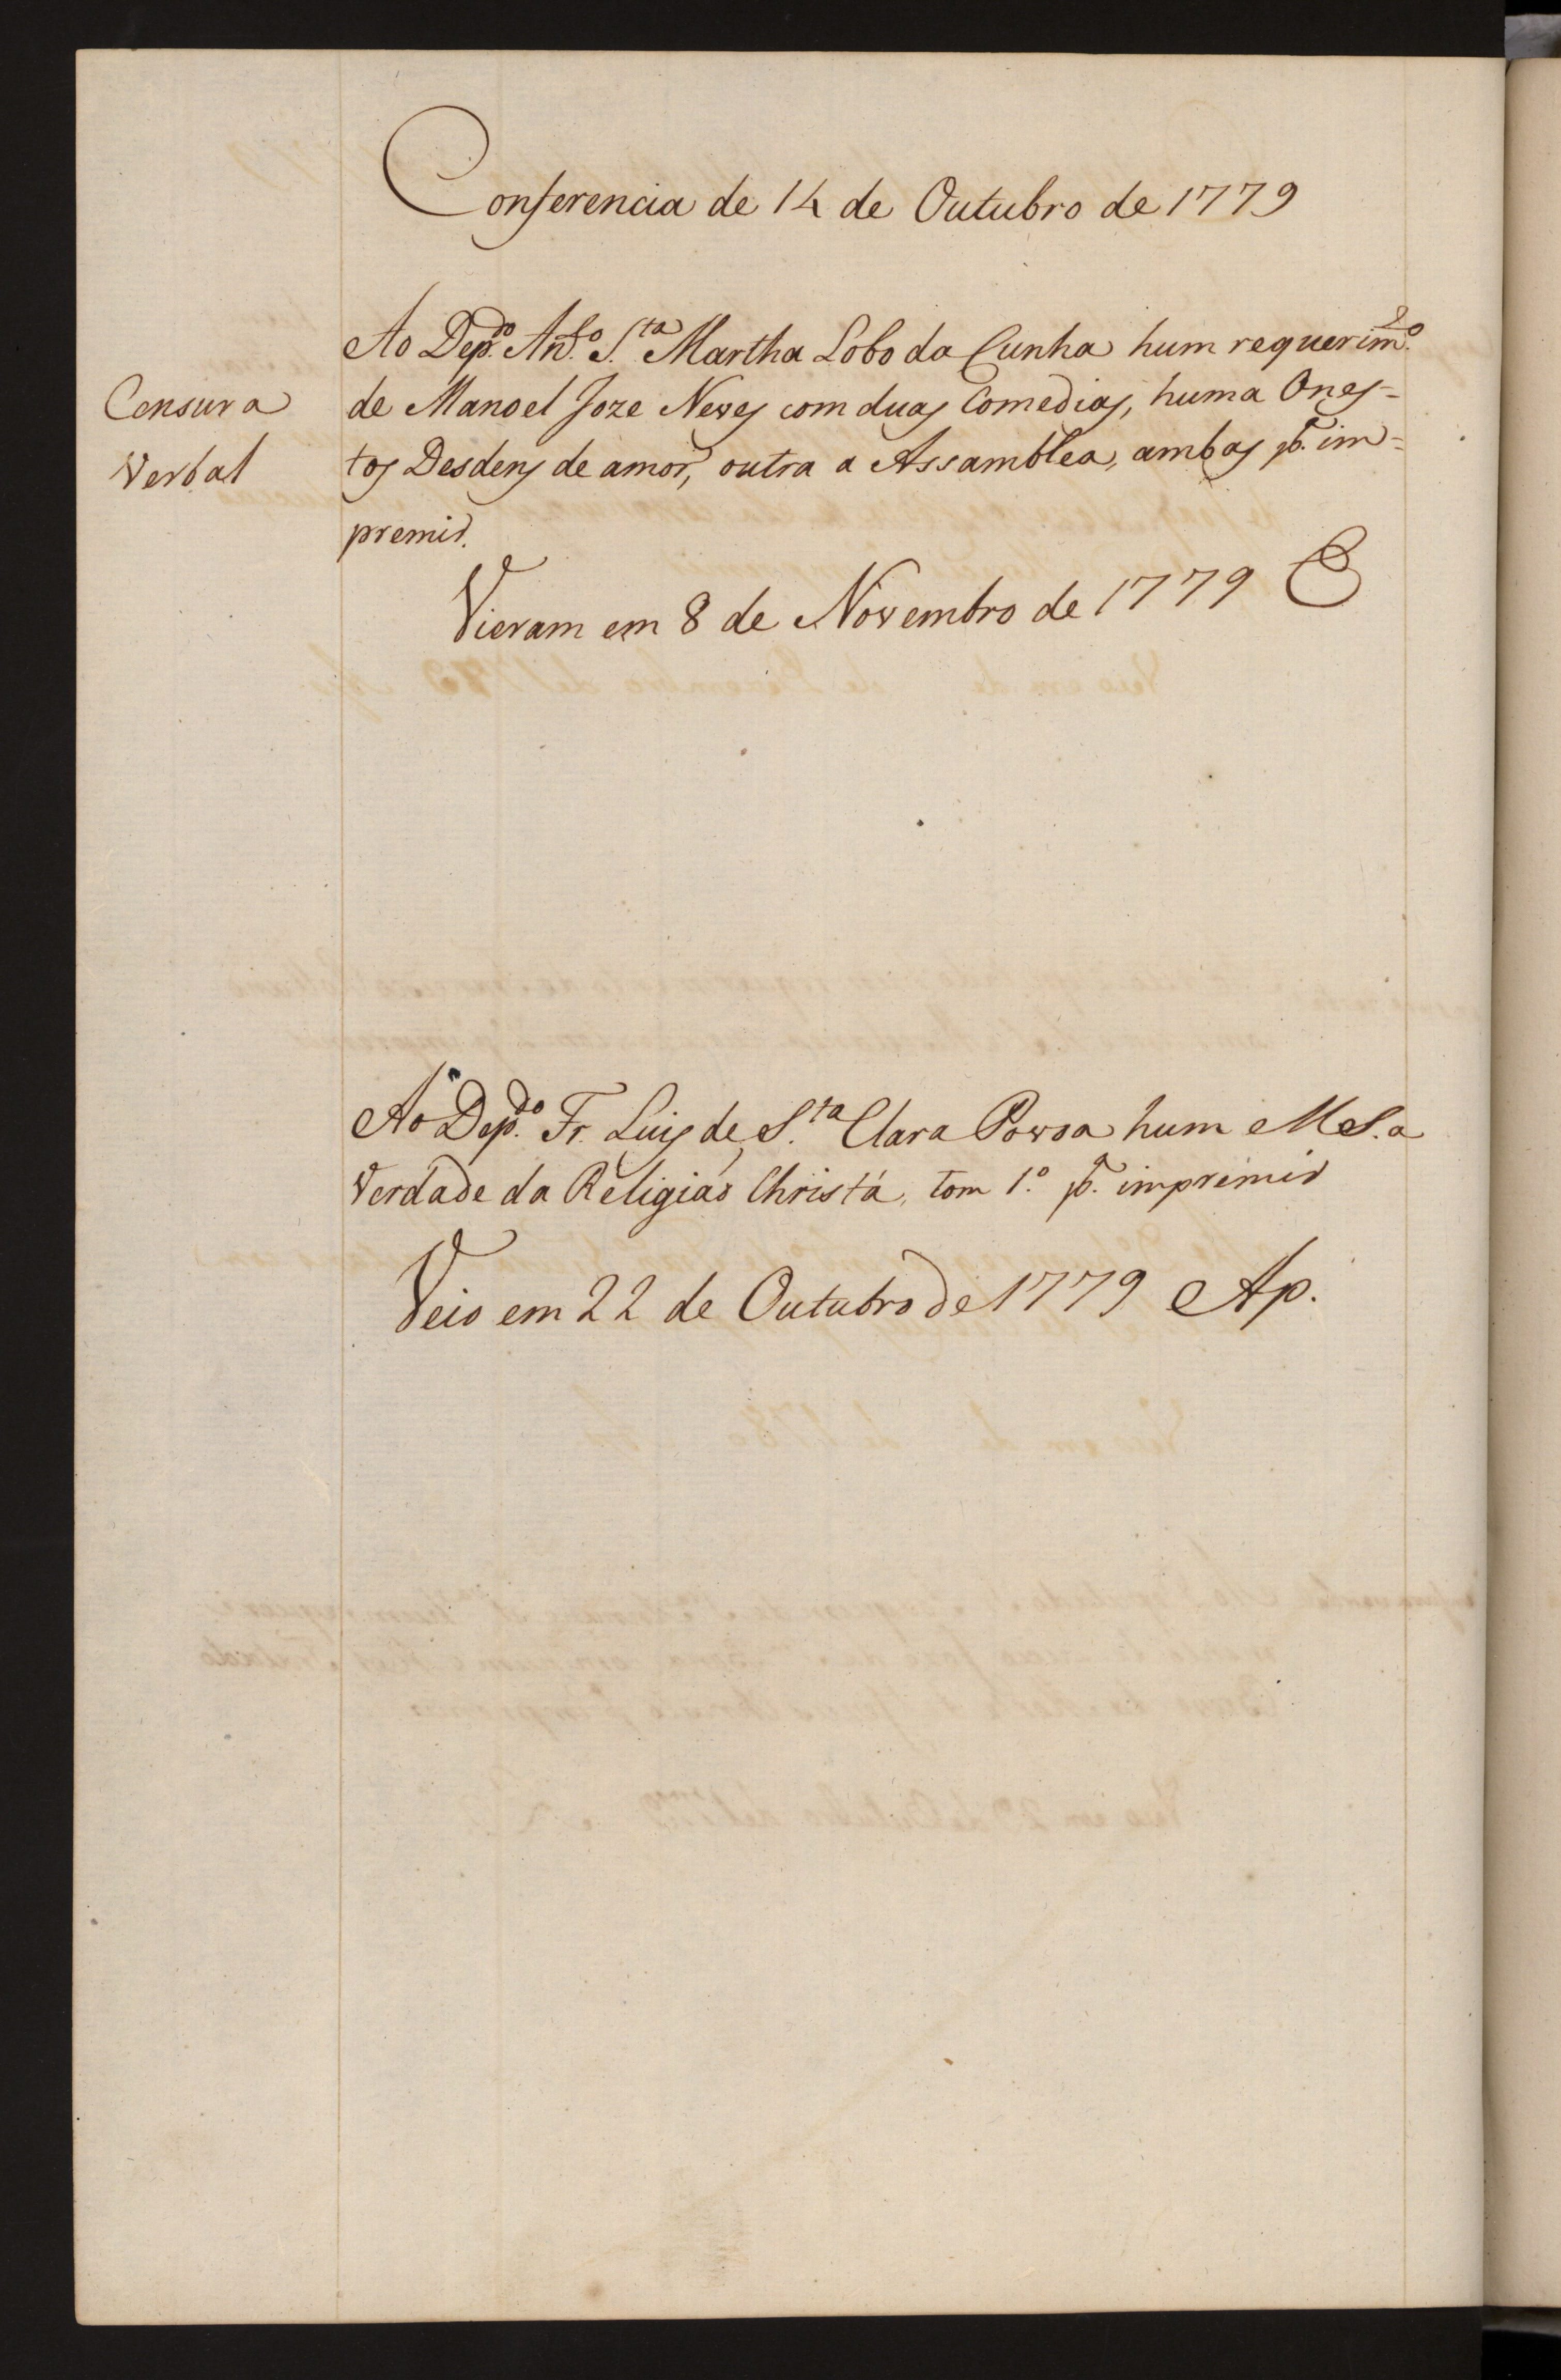 Conferencia de 14 de Outubro de 1779
Censura
Verbal
Ao Dep.do An.to S.ta Martha Lobo da Cunha hum requerim.to
de Manoel Joze Neves com duas Comedias, huma Ones-
tos Desdens de amor, outra a Assamblea, ambas p.a im-
premir.
Vieram em 8 de Novembro de 1779
Ao Dep.do Fr. Luis de S.ta Clara Povoa hum MS. a
Verdade da Religiaó Christá, tom 1.o p.a imprimir
Veio em 22 de Outubro de 1779 Ap.